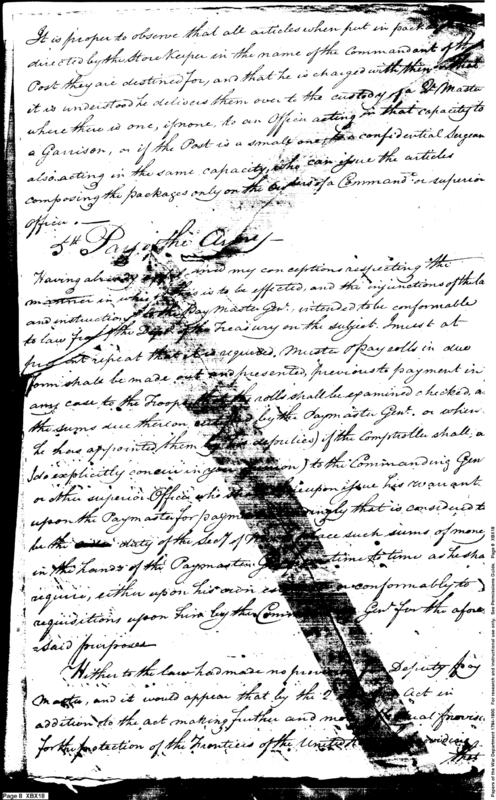 It is proper to observe that all articles when put in pack
directed by the Store Keeper in the name of the Commandant of the
Post they are destined for, and that he is charged with them
it is understood he delivers them over to the custody of a Qr Master
where there is one, if none, to an Officer acting in that capacity to
a Garrison, or if the Post is a small one to a confidential Sergean
also acting in the same capacity, who can issue the articles
composing the packages only on the orders of a Commandt or superior
Officer.
5th Pay of the Army
Having already my conceptions respecting the
manner in which this is to be effected, and the injunctions of the la
and instructions to the Pay Master Genl, intended to be conformable
to law from the Dept of the Treasury on the subject. I must at
present repeat that it is required, Muster & pay rolls in due
form shall be made out and presented, previous to payment in
any case to the Troops the rolls shall be examined checked, a
the sums due thereon by the Paymaster Genl. or when
he has appointed them by his deputies) if the Comptroller shall, a
I do explicitly concur in to the Commanding Gen
or other superior Officer who is upon issue his warrant
upon the Paymaster for payment that is considered to
be the duty of the Secy of War such sums of mone
in the hands of the Paymaster Genl time to time as he sha
require, either upon his own conformably to
requisitions upon him by the Comm Genl for the afore
said purposes
Hither to the law had made no prov Deputy pay
Master, and it would appear that by the 2 Act in
addition to the act making further and more effectual provisi
for the protection of the Frontiers of the United
that
Page 8 XBX18
Papers of the War Department 1784-1800. For research and instructional use only. See Permissions Guide. Page 8 XBX18